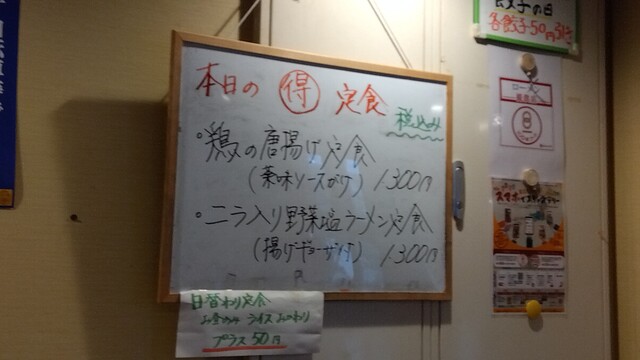 本日の 得 定食
税込み
・鶏の唐揚げ定食
(薬味ソースがけ) 1300円
・ニラ入り野菜塩ラーメン定食
(揚げギョーザ付) 1300円
日替わり定食
ライス
プラス50円
餃子の日
各餃子50円引き
ローメン